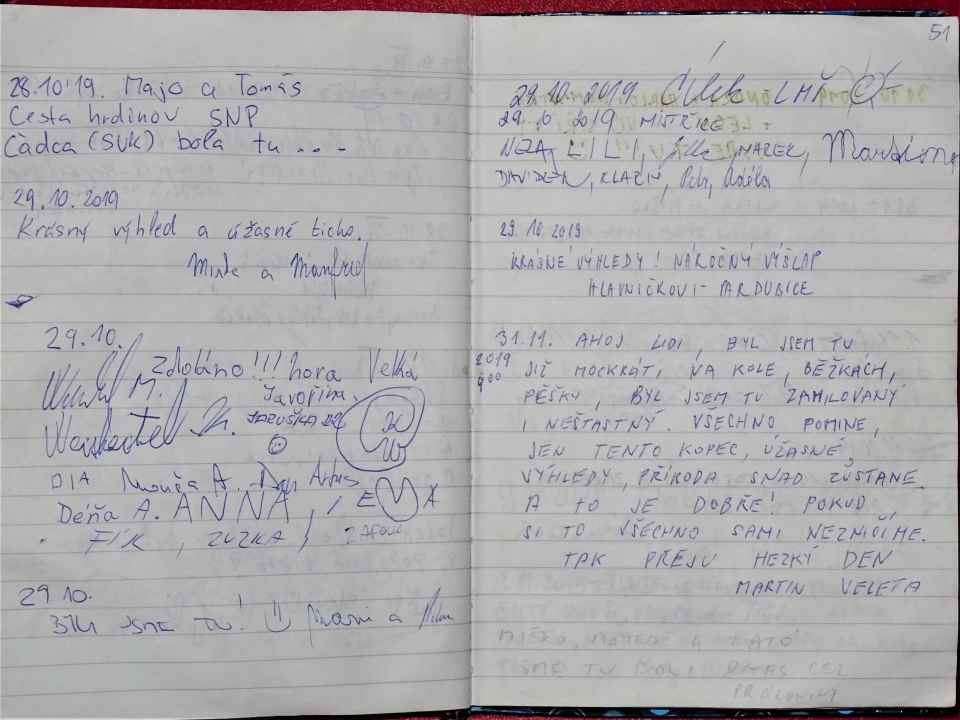 28.10'19. Majo a Tomáš
Cesta hrdinov SNP
Čadca (SVK) bola tu...
29.10.2019
Krásný výhled a úžasné ticho.
a Manfred
29.10.
Zdoláno!!! hora Velká
M. Javořina.
DIA A. 
Déňa A. ANNA, EMA
FÍK, ZUZKA,
29.10.
BYLI JSME TU! a
51
29.10 2019
29.10 2019 MISTŘICE
LILI, MAREK,
KLÁRA, Petr, Adéla
29.10.2019
KRÁSNÉ VÝHLEDY! NÁROČNÝ VÝŠLAP
HLAVNIČKOVI - PARDUBICE
31.11. AHOJ LIDI, BYL JSEM TU
2019 JIŽ MOCKRÁT, NA KOLE, BĚŽKÁCH,
9:00 PĚŠKY, BYL JSEM TU ZAMILOVANÝ
I NEŠŤASTNÝ. VŠECHNO POMINE,
JEN TENTO KOPEC, ÚŽASNÉ
VÝHLEDY, PŘÍRODA SNAD ZŮSTANE.
A TO JE DOBŘE! POKUD
SI TO VŠECHNO SAMI NEZNIČÍME.
TAK PŘEJU HEZKÝ DEN
MARTIN VELETA
MIŠKO, MATEJ A TATO
SME TU BOLI DNES CEZ
PRÁZDNINY